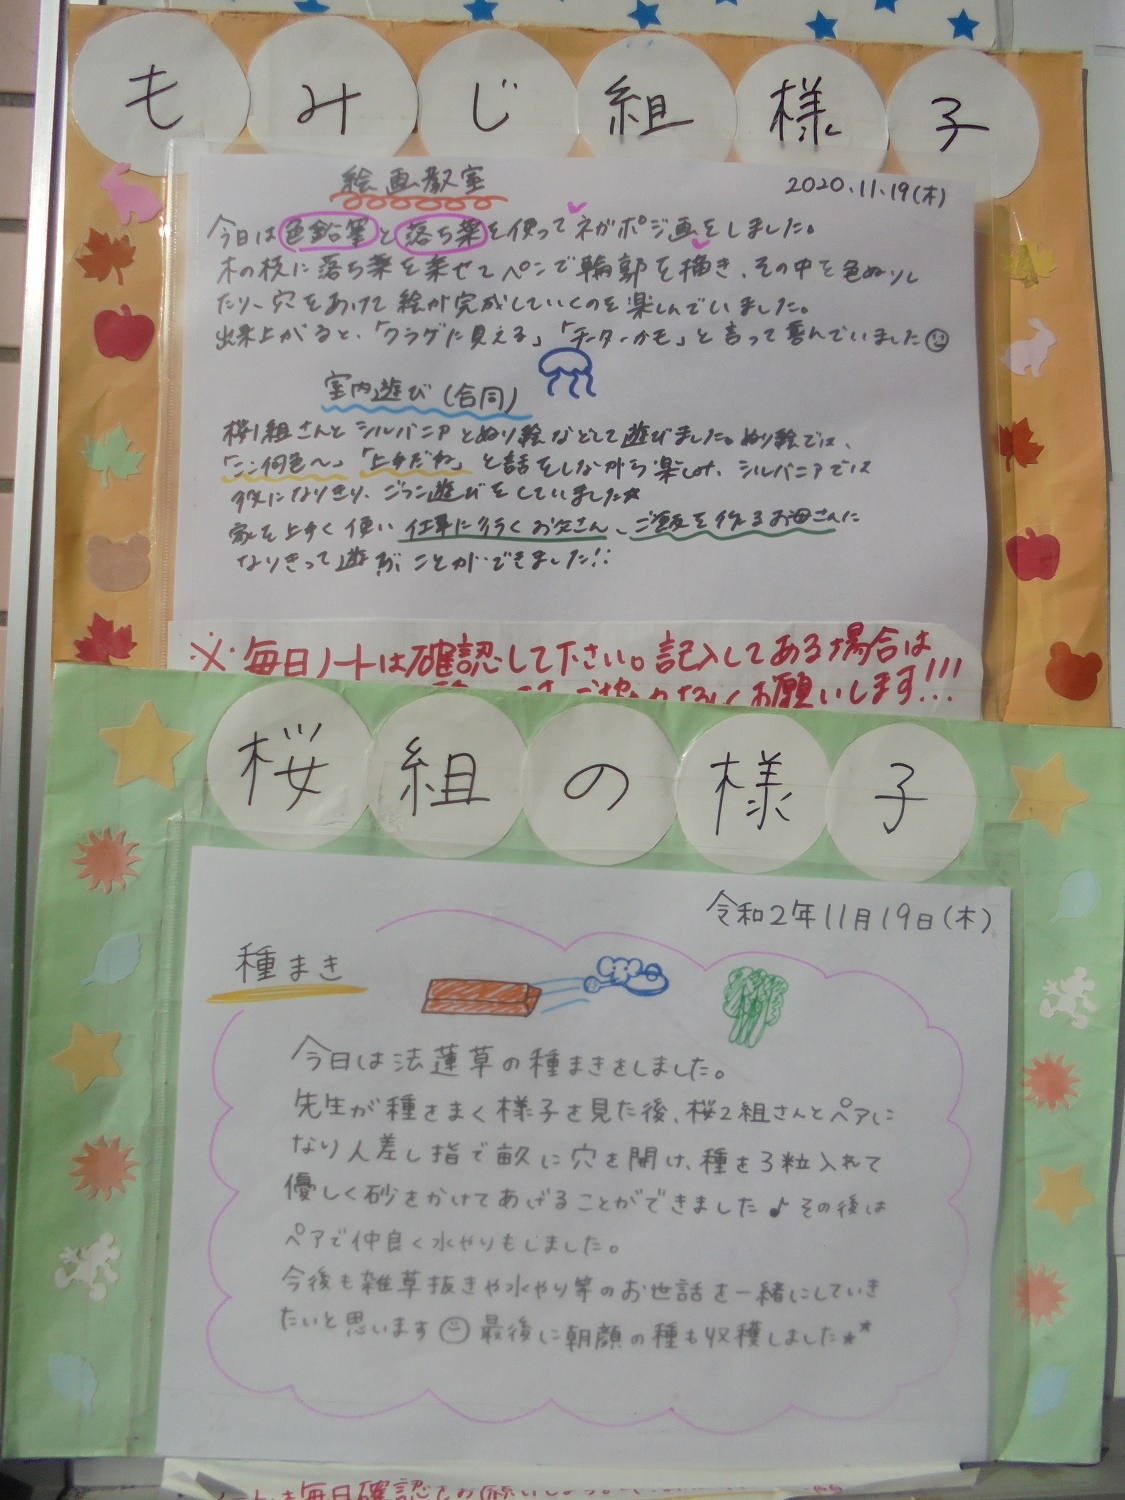 もみじ組様子
絵画教室
2020.11.19(木)
今日は色鉛筆と落ち葉を使ってネガポジ画をしました。
木の枝に落ち葉を乗せてペンで輪郭を描き、その中を色ぬりし
たり、穴をあけて絵が完成していくのを楽しんでいました。
出来上がると、「クラゲに見える」「チーターかも」と言って喜んでいました
室内遊び(合同)
桜1組さんとシルバニアとぬり絵などをして遊びました。ぬり絵では、
「ここ何色〜」「上手だね」と話をしながら楽しみ、シルバニアでは
家族になりきり、ごっこ遊びをしていました☆
家を上手く使い仕事に行くお父さん、ご飯を作るお母さんに
なりきって遊ぶことができました!!
※毎日ノートは確認して下さい。記入してある場合は
お願いします!!!
桜組の様子
令和2年11月19日(木)
種まき
今日は法蓮草の種まきをしました。
先生が種をまく様子を見た後、桜2組さんとペアに
なり人差し指で畝に穴を開け、種を3粒入れて
優しく砂をかけてあげることができました♪その後は
ペアで仲良く水やりもしました。
今後も雑草抜きや水やり等のお世話を一緒にしていき
たいと思います 最後に朝顔の種も収穫しました★*
毎日確認